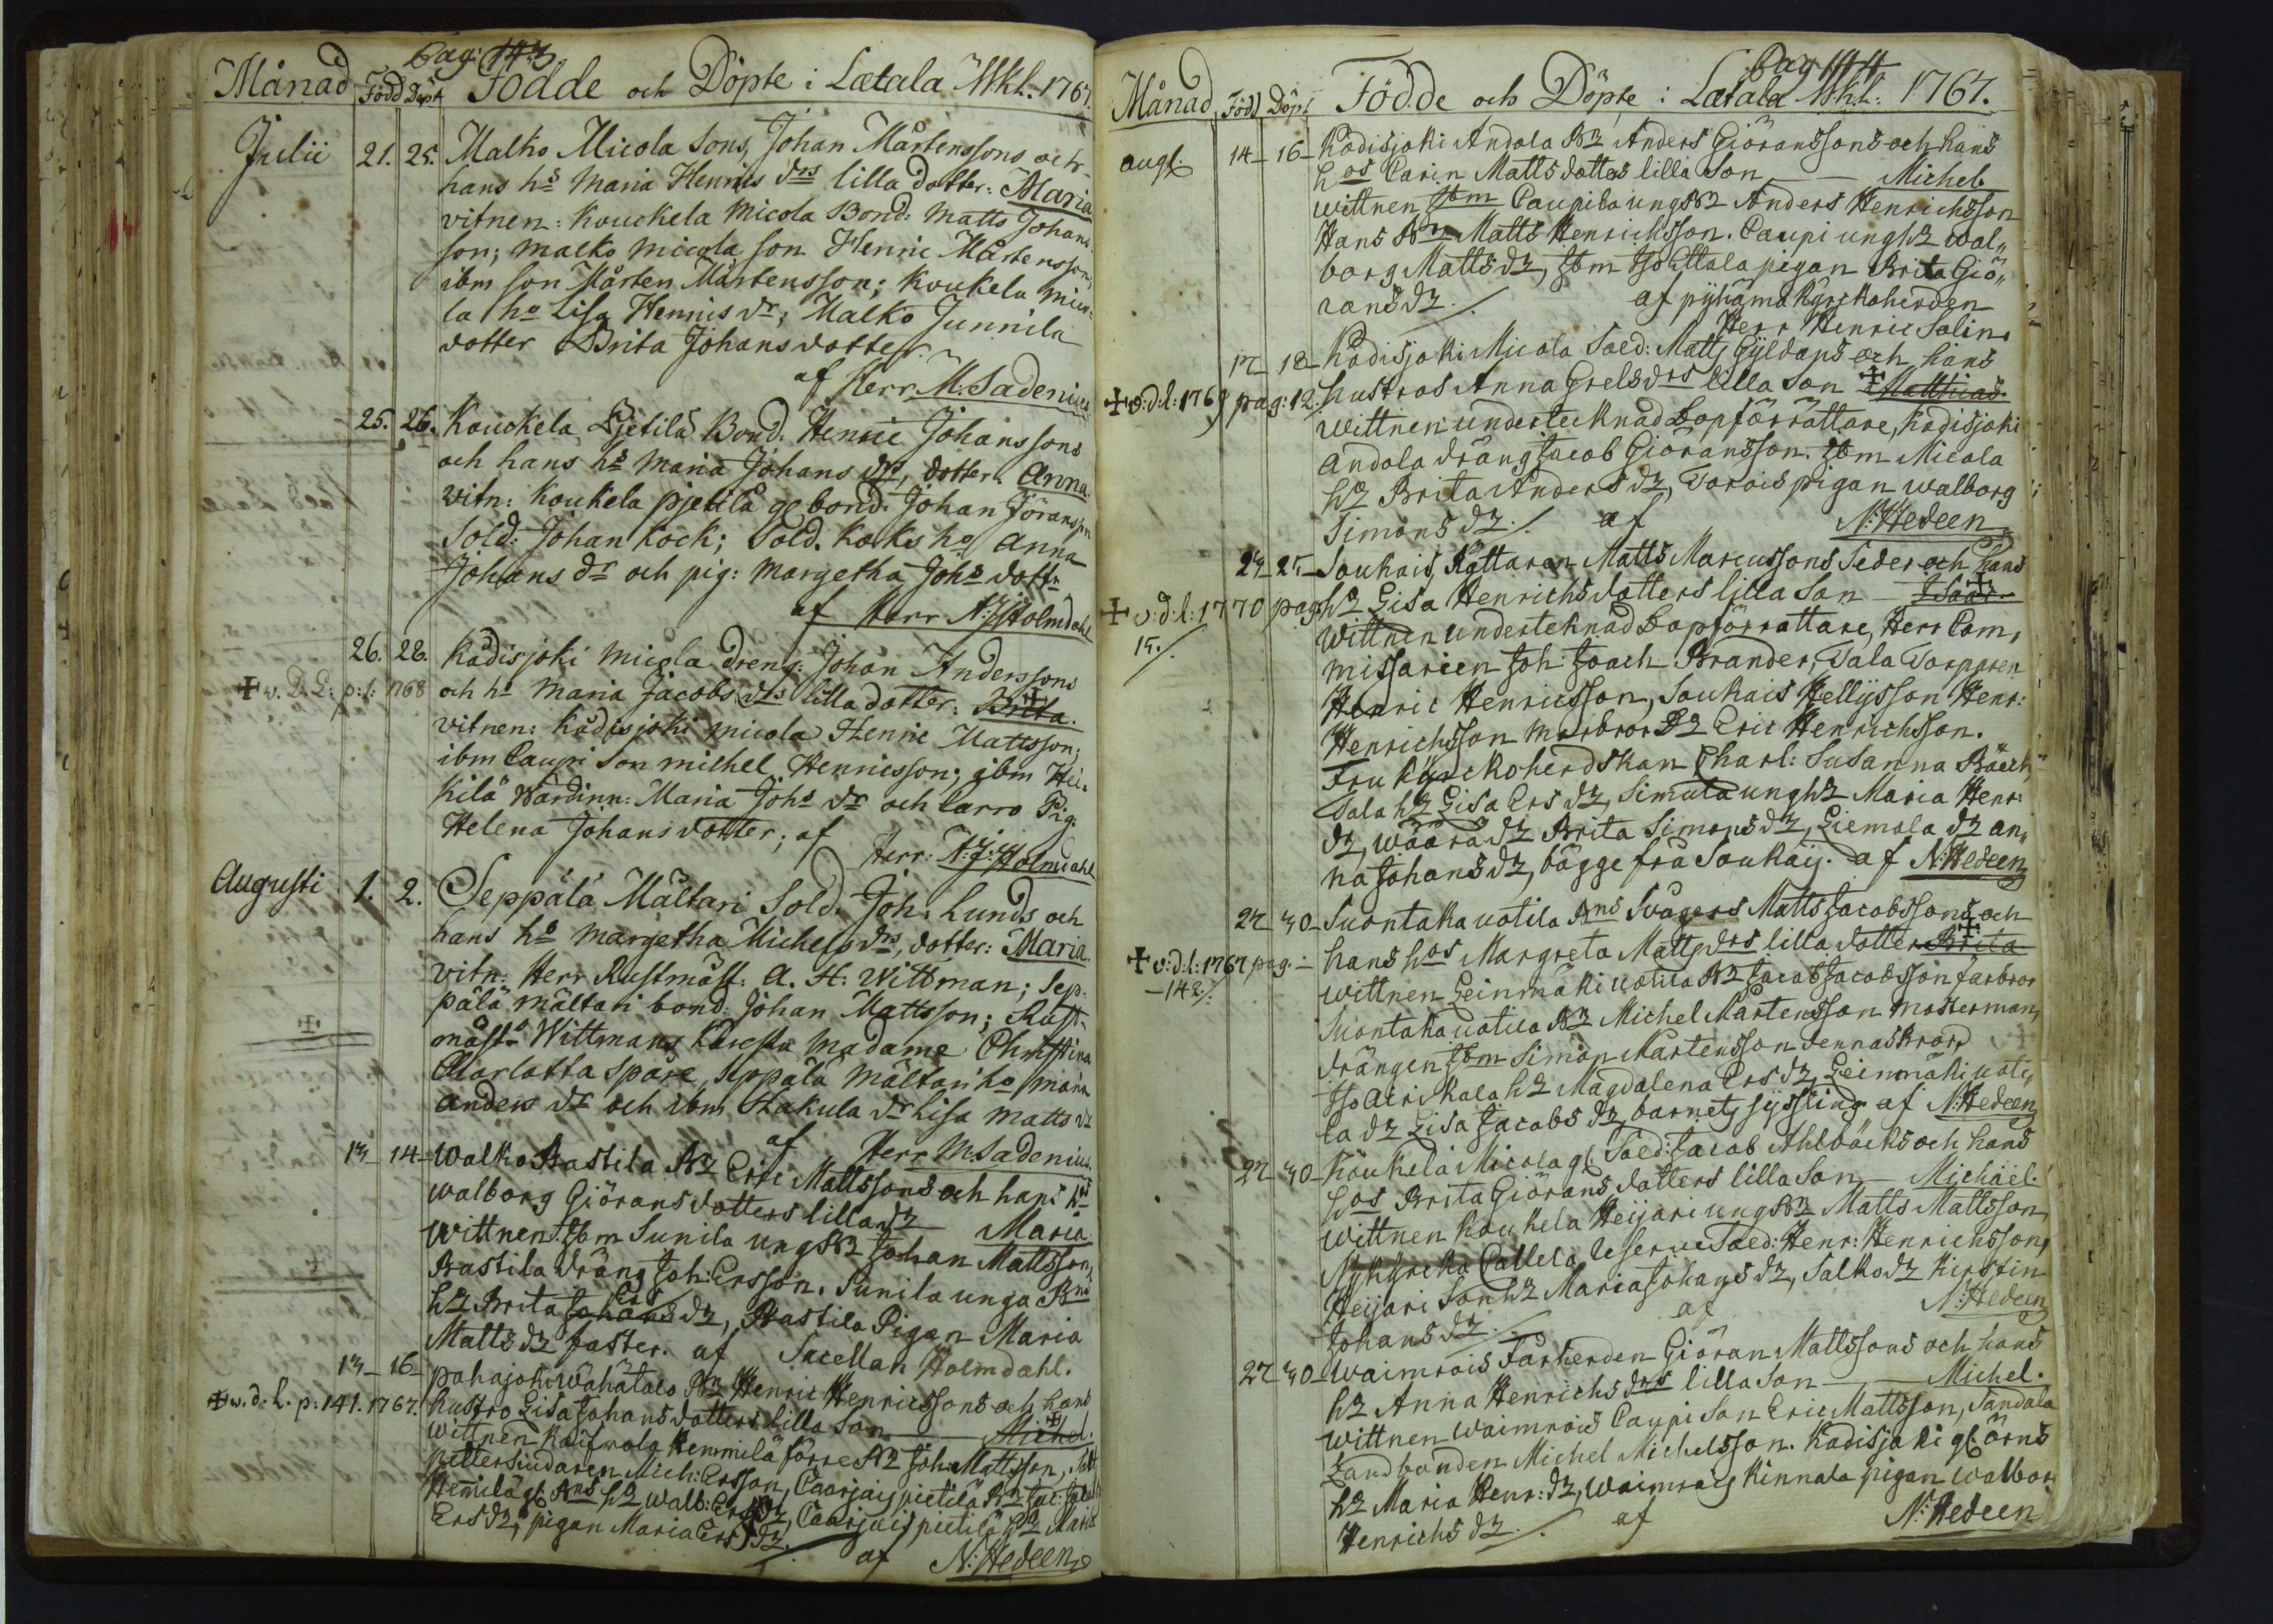 Pag: 143
Månad Född Döpt Födde och Döpte i Lætala Mkl. 1767.
Julii 21. 25. Malko Micola Sons, Johan Mårtenssons och
hans hs Maria Hennis drs lilla dotter: Maria
vitnen: Kouckela Micola Bond: Matts Johans
son; Malko Micola son Henric Mårtensson,
ibm son Mårten Mårtensson; Koukela Mico-
la ho Lisa Hennis dr; Malko Junnila
dotter Brita Johansdotter.
af Herr M. Sadenius
25. 26. Kouckela Pjetilä Bond. Henric Johanssons
och hans hs Maria Johans drs, dotter Anna.
vitn: Koukela pjetilä ge bond. Johan Jöransson
Sold: Johan Kock; Sold. Kocks ho Anna
Johans dr och pig: Margetha Johs dottr
af Herr N: J: Holmdahl
26. 28. Kådisjoki Micola dreng: Johan Anderssons
✝ v. D. L: p: 1: 1768 och hs Maria Jacobs drs lilla dotter: Brita. ✝
vitnen: Kådisjoki Micola Henric Mattsson;
ibm Caupi son Michel Hennicsson; ibm Hei-
kilä Wärdinn: Maria Johs dr och Carro Pig:
Helena Johansdotter; af
Herr: N: J: Holmdahl
Augusti 1. 2. Seppälä Mältari Sold. Joh: Lunds och
hans hs Margetha Michels drs, dotter: Maria.
vitn: Herr Rustmäst: A. H: Wittman; Sep-
pälä Mältari bond: Johan Mattsson; Rust-
mäst: Wittmans Käresta Madame Christina
Charlotta Spåre, Seppälä Mältari ho Maria
Anders dr och ibm Stakula dr Lisa Matts dr
af Herr M. Sadenius.
13 14 Walko Rastila Bz Eric Mattssons och hans hos
Walborg Giöransdotters lilla dz Maria.
Wittnen Ibm Sunila ung Bz Johan Mattsson,
Rastila dräng Joh: Ersson. Sunila unga Bns
hz Brita Johans Ers dz, Rastila Pigan Maria
Matts dz faster. af Sacellan Holmdahl.
13 16 Pahajoki Wähätalo Bz Henric Henricssons och hans
✝ v. d. L. p: 141. 1767. hustro Lisa Johansdotters lilla Son Michel. ✝
Wittnen Kaifwola Hemmilä förre Bz Joh: Mattsson,
Pettersiudaren Mich: Ersson, Caarjais pietilä Bz
Hemmilä gl: Bns hz Walb: Ers dz, Caarjais pietilä hz Maria
Ers dz, pigan Maria Ers dz.
af N: Hedeen
Pag 144
Månad Född Döpt Födde och Döpte i Lætala Mkl: 1767.
Aug: 14 16 Kådisjoki Andola Bz Anders Giöranssons och hans
hos Carin Mattsdotters lilla Son Michel
Wittnen Ibm Caupila ung Bz Anders Henrichsson
Hans Bz Matts Henrichsson. Caupi ung hz Wal„
borg Matts dz, Ibm Iso Ettala pigan Brita Giö„
rans dz. af Pyhäma Kyrckoherden
Herr Henric Salin.
17 18 Kådisjoki Micola Soed: Matts Gyldans och hans
✝ v: d: l: 1769 pag: 12. hustros Anna Grels drs lilla Son Matthias. ✝
Wittnen undertecknad Dopförrättare, Kådisjoki
Andola dräng Jacob Giöransson. Ibm Micola
hz Brita Anders dz, Torois pigan Walborg
Simons dz. af N: Hedeen
24 25 Soukais Råttaren Matts Marcussons Seder och hans
✝ v: d: l: 1770 pag: hz Lisa Henrichsdotters lilla Son Isaac ✝
15. Wittnen undertecknad Dopförrattare, Herr Com„
missarien Joh: Joach Brander, Tala Torparen
Henric Henricsson, Soukais Hellysson Henr:
Henrichsson morbror Dz Eric Henrichsson.
Fru Kyrckoherdskan Charl: Susanna Bäeck
Tala hz Lisa Ers dz, Simula ung hz Maria Henr:
dz, Wäärä dz Brita Simons dz, Liemola dz An„
na Johans dz, bägge frå Soukaij. af N: Hedeen
27 30 Suontaka uotila Bns Svågers Matts Jacobssons och
✝ v: d: l: 1767 pag: hans hos Margreta Matts drs lilla dotter Brita ✝
142. Wittnen Leinmäki uotila Bz Jacob Jacobsson farbror
Suontaka uotila Bz Michel Mårtensson mosterman,
drängen Ibm Simon Mårtensson dennas Bror,
Iso Airikala hz Magdalena Ers dz, Leinmäki uoti„
la dz Lisa Jacobs dz barnets syssling af N: Hedeen
27 30 Koukela Micola gl: Soed: Jacob Ahlbäcks och hans
hos Brita Giörans dotters lilla Son Michäel.
Wittnen Koukela Heijari ung Bz Matts Mattsson,
Nykyrcka Callela Reserve Soed: Henr: Henrichsson,
Heijari Son hz Maria Johans dz, Salko dz Kirstin
Johans dz. af N: Hedeen
27 30 Waimrois Fårherden Giöran Mattssons och hans
hz Anna Henrichs drs lilla Son Michel.
Wittnen Waimrois Caupi Son Eric Mattsson, Sandala
Landbonden Michel Michelsson. Kadisjoki gl: Örns
hz Maria Henr: dz, Waimrais Kinnala pigan Walbor
Henrichs dz. af N: Hedeen